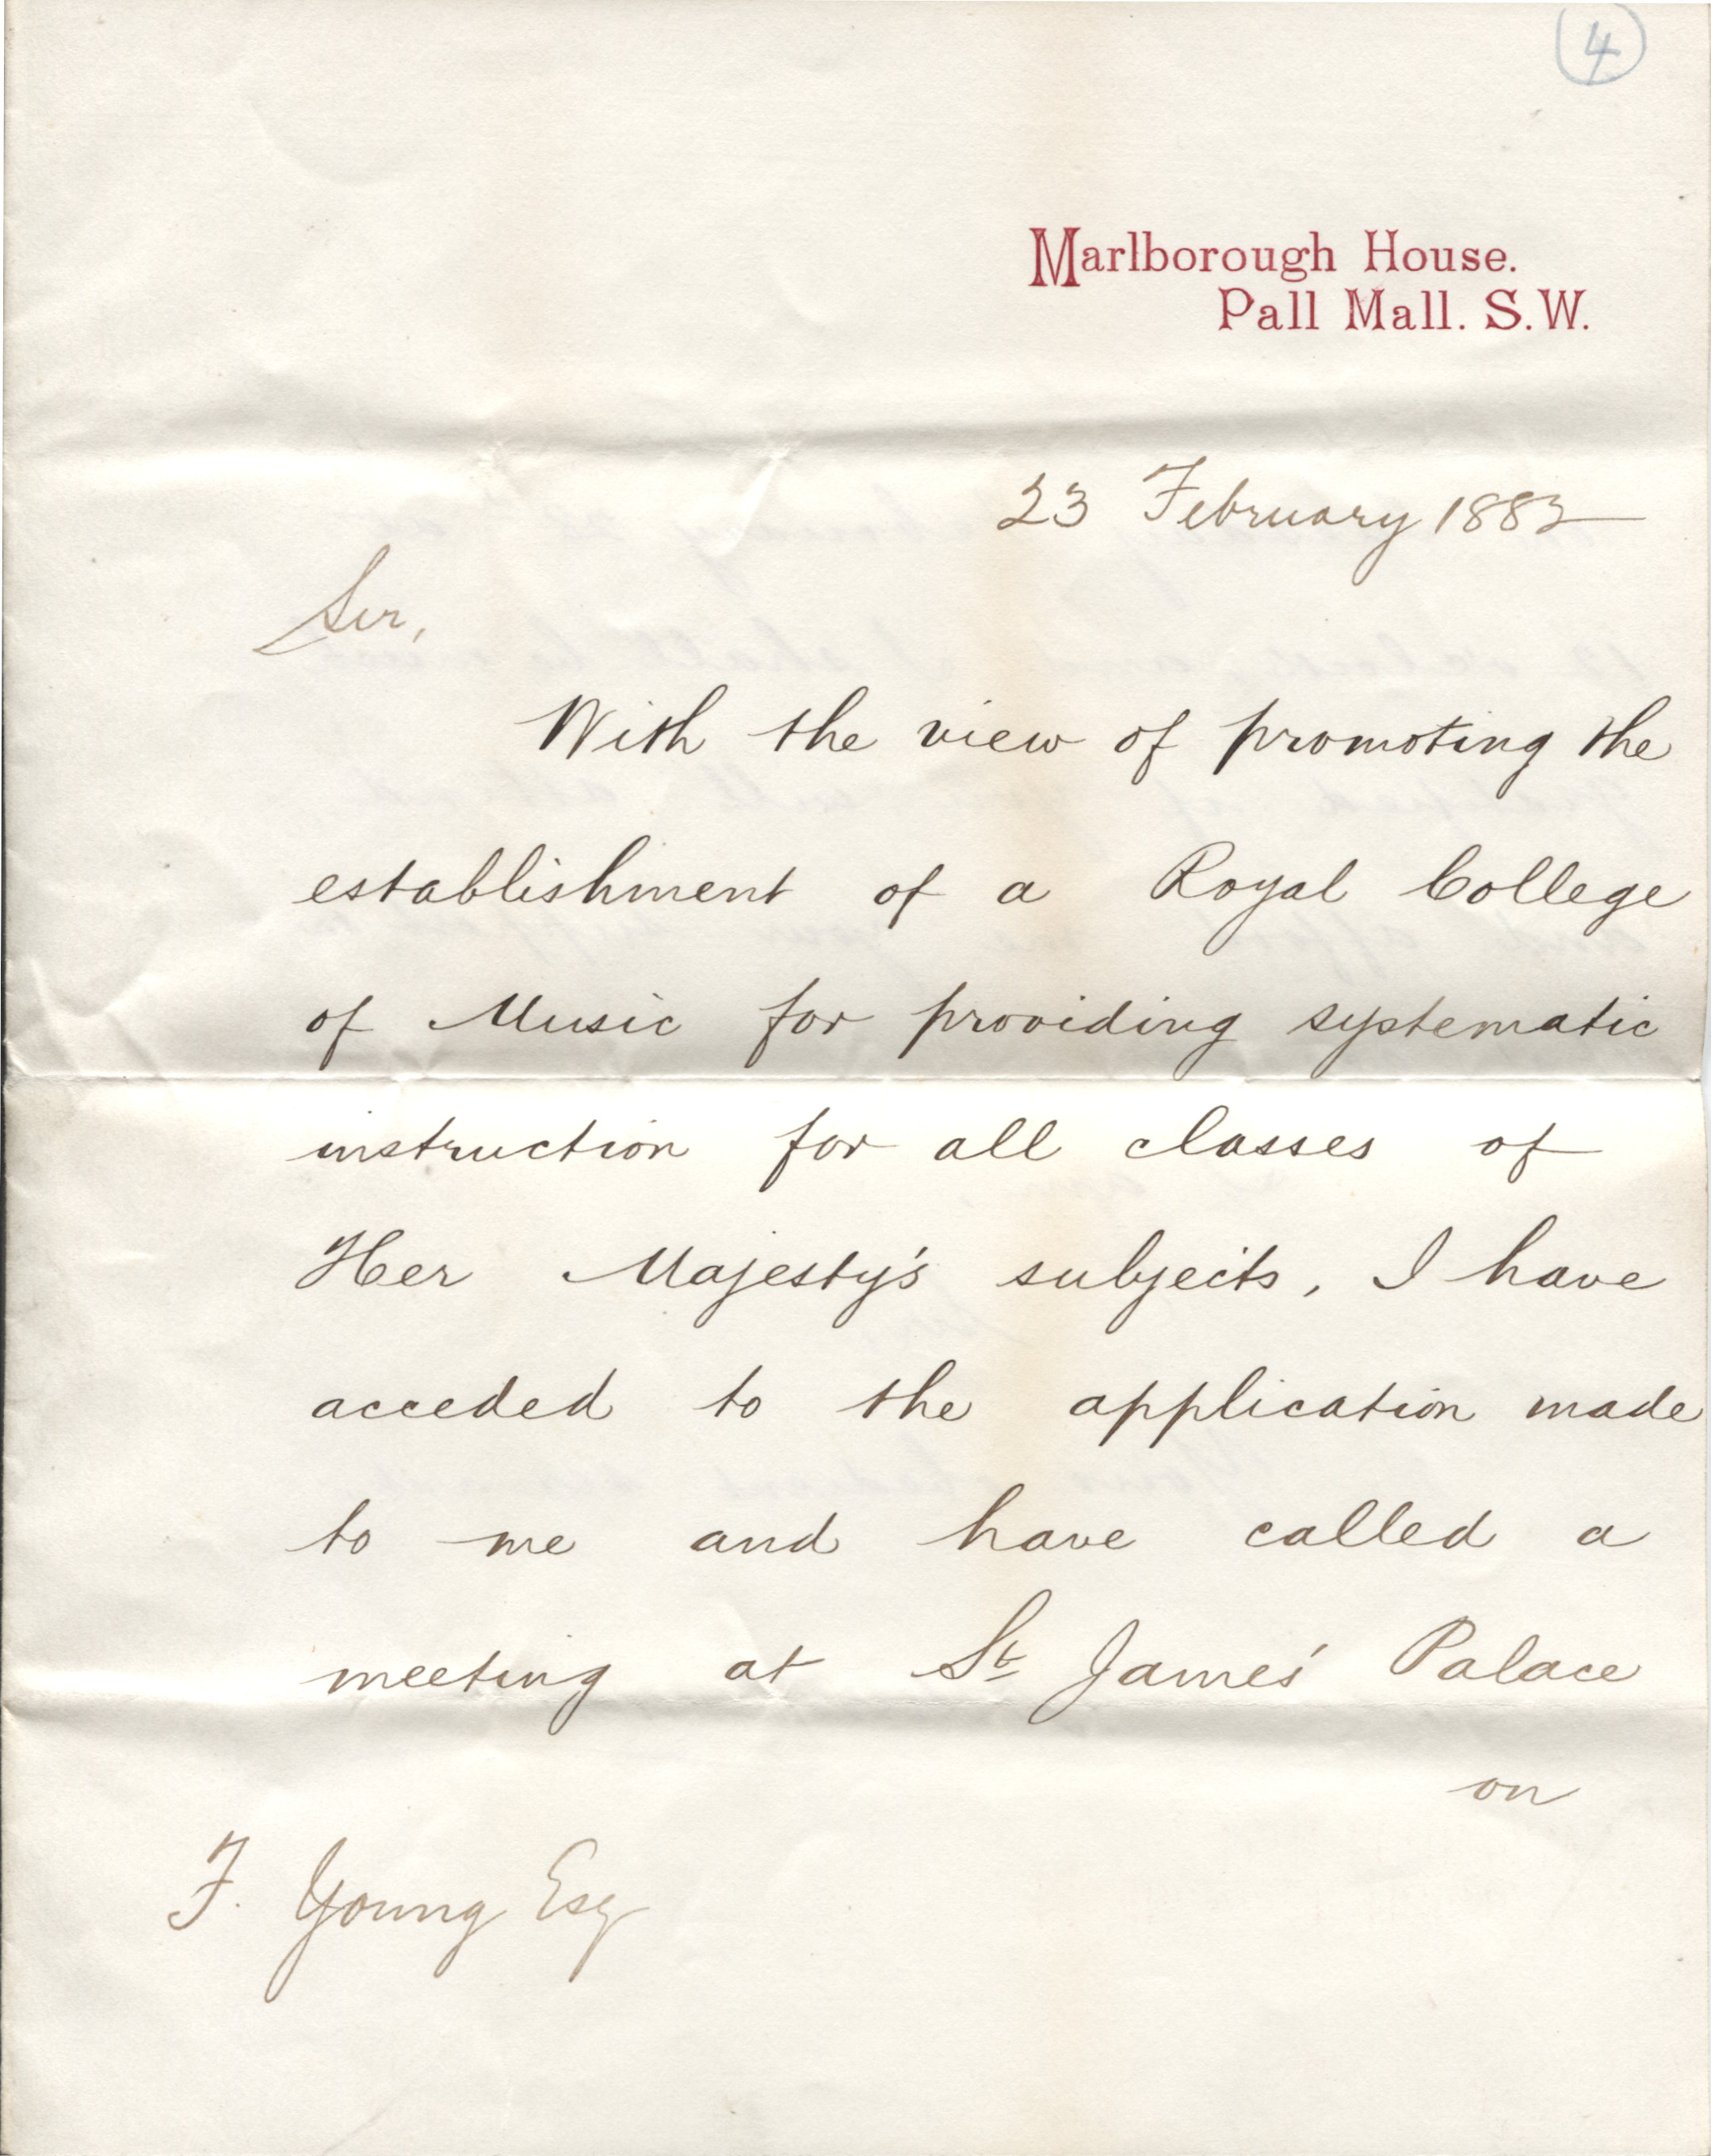 4
Marlborough House.
Pall Mall. S.W.
23 February 1882
Sir,
With the view of promoting the
establishment of a Royal College
of Music for providing systematic
instruction for all classes of
Her Majesty's subjects, I have
acceded to the application made
to me and have called a
meeting at St James' Palace
on
F. Young Esq